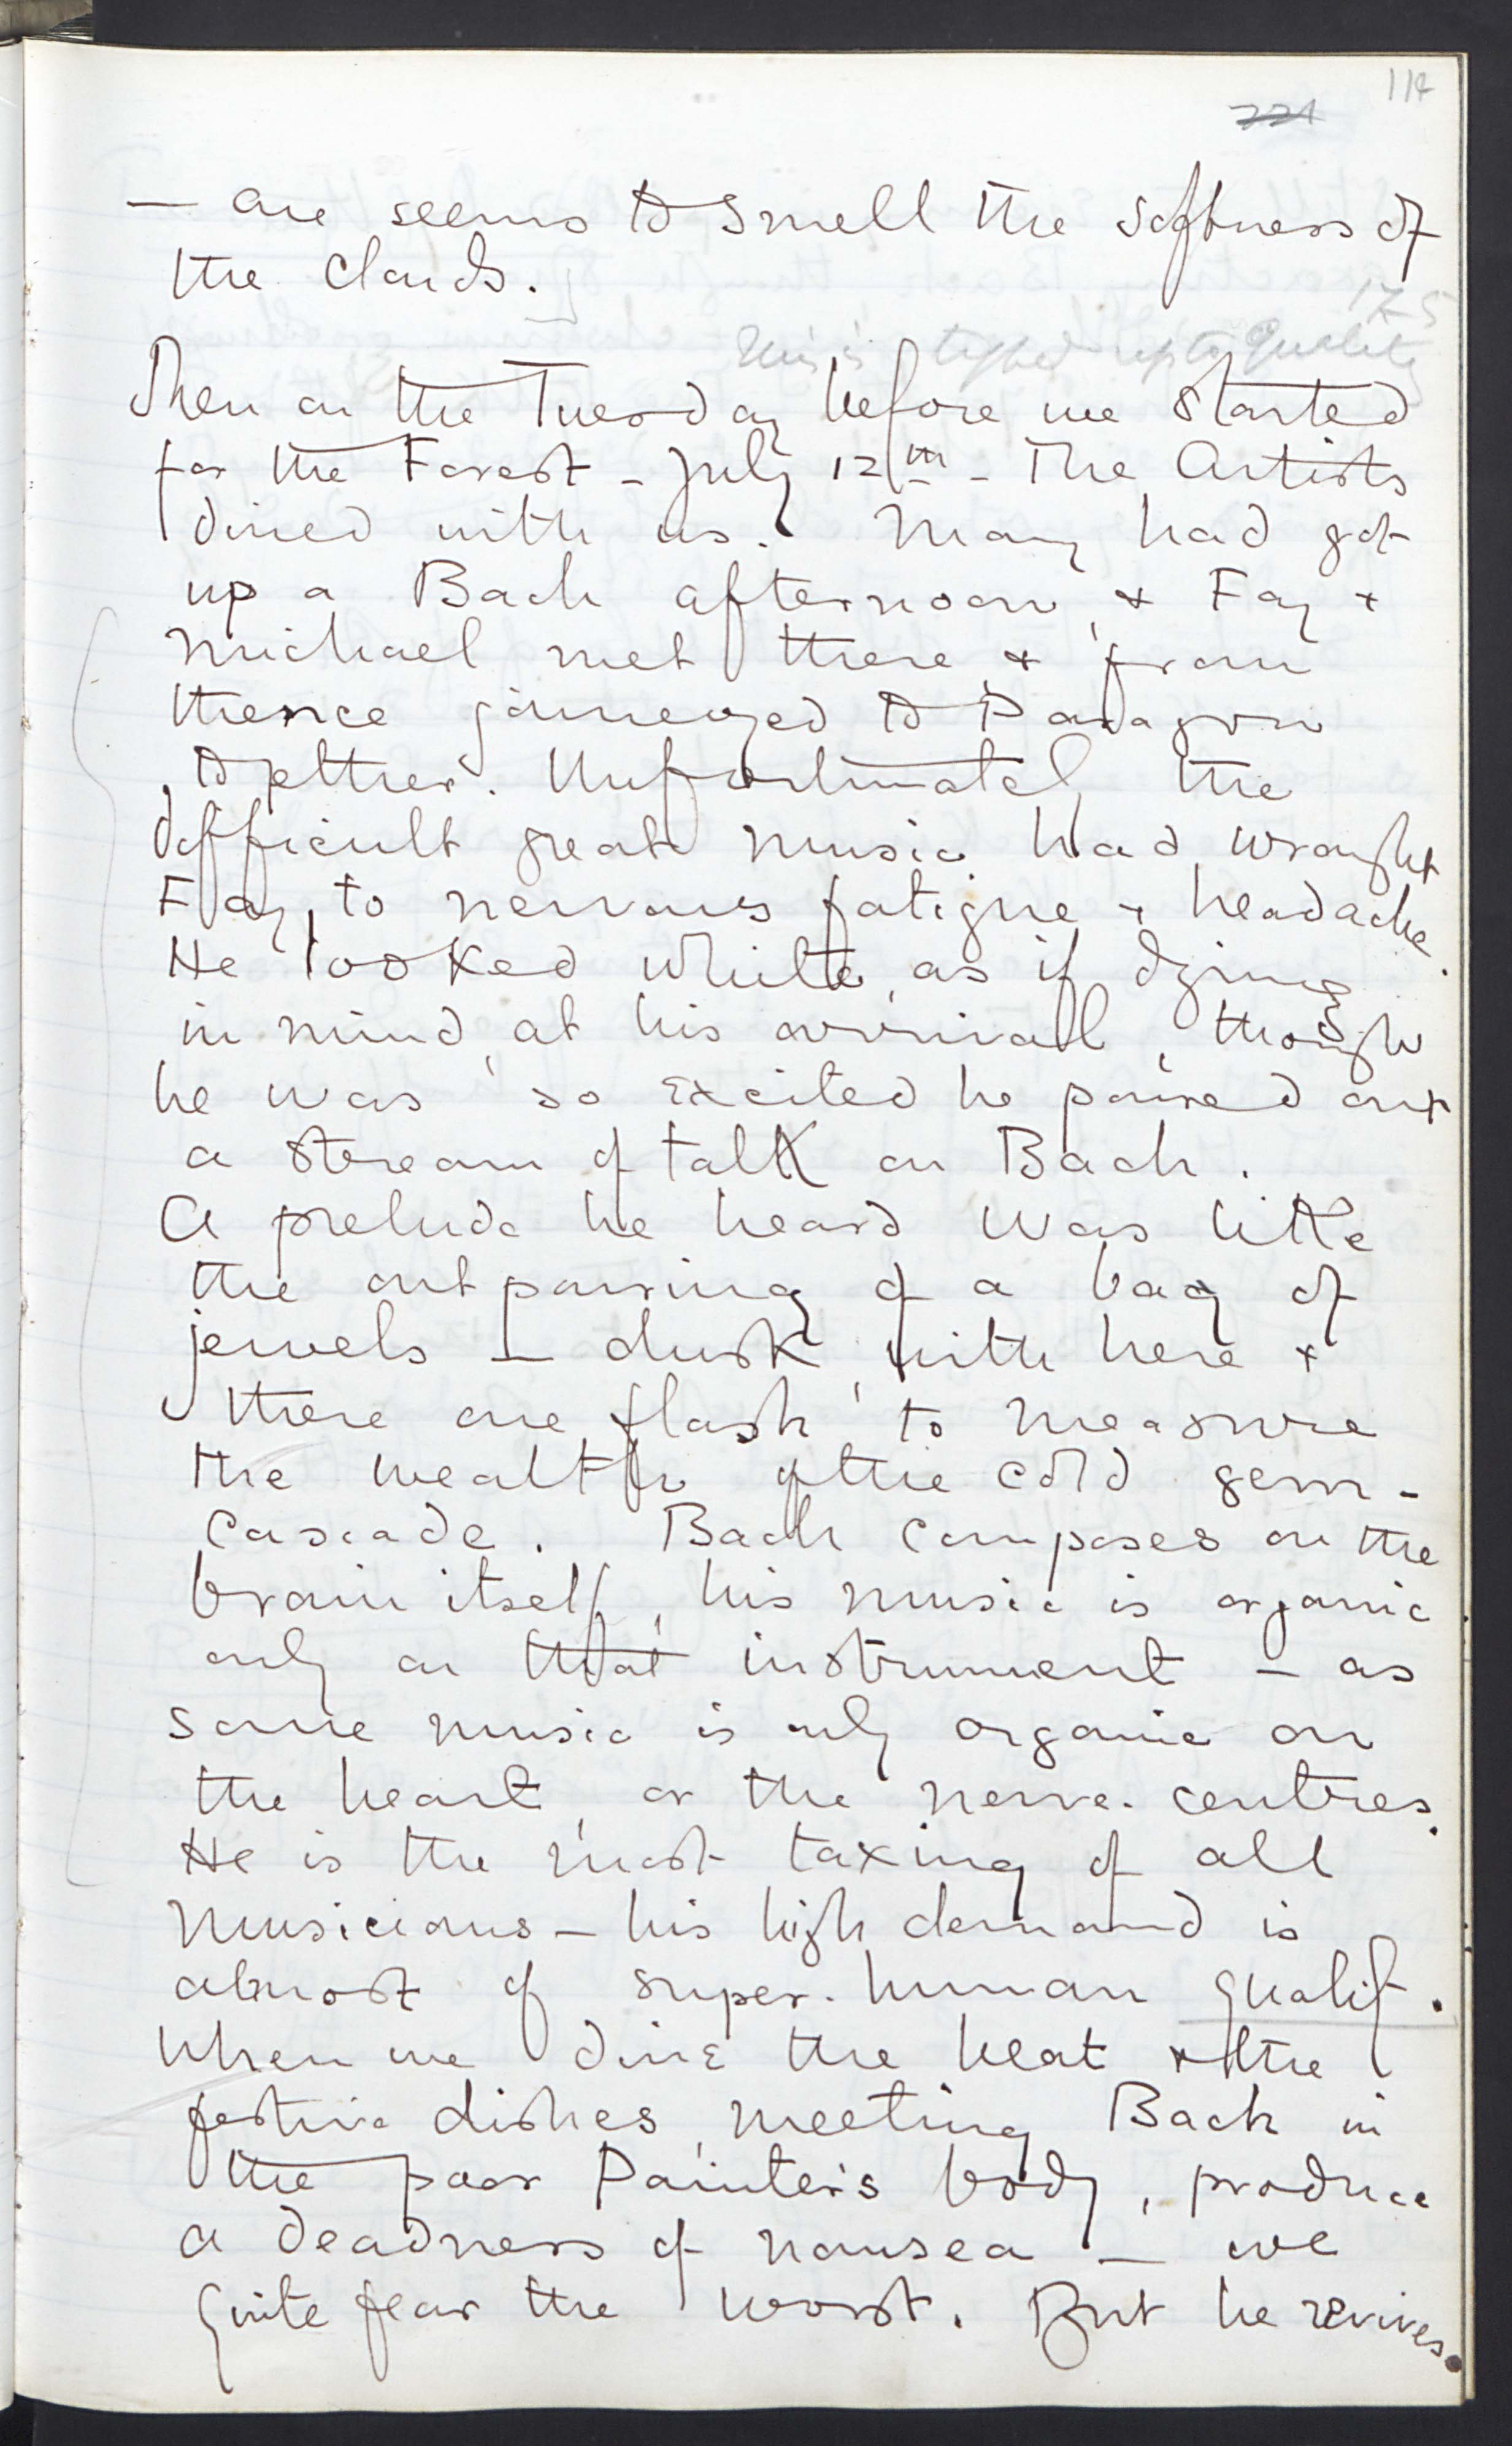 114
221
— one seems to smell the softness of
the clouds.
175
This is typed up to Quality
Then on the Tuesday before we started
for the Forest – July 12th – The Artists
dined with us. Mary had got
up a Bach afternoon, & Fay &
Michael met there & from
thence journeyed to Paragon
together. Unfortunately the
difficult great music had wrought
Fay, to nervous fatigue & headache.
He looked white, as if dying
in mind, at his arrival, though
he was so excited he poured out
a stream of talk on Bach.
A prelude he heard was like
the outpouring of a bag of
jewels — dusk, with here &
there one flash, to measure
the wealth of the cold gem-
cascade. Bach composes on the
brain itself, his music is organic
only on that instrument – as
some music is only organic on
the heart, or the nerve-centres.
He is the most taxing of all
musicians – his high demand is
almost of super-human quality.
When we dine the heat & the
festive dishes, meeting Bach in
the poor Painter's body, produce
a deadness of nausea — we
quite fear the worst. But he revives.